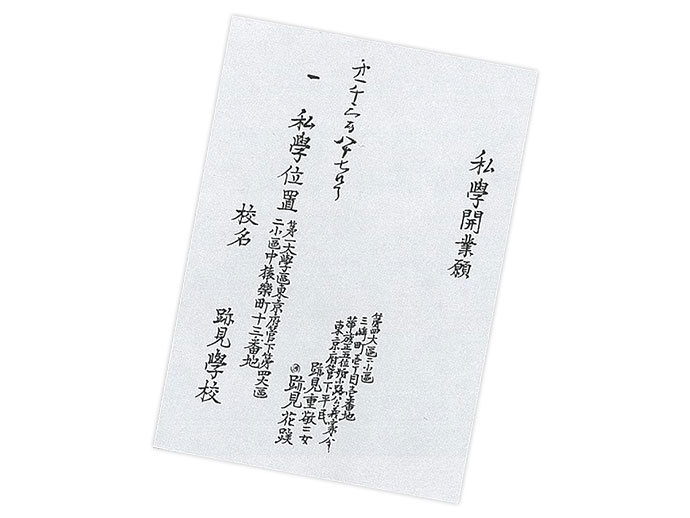 私學開業願
第四大區二小區
三崎町壱丁目壱番地
華族正五位姉小路公義家令
東京府管下平民
跡見重敬二女
跡見花蹊
一 私學位置
第一大學區東京府管下第四大區
二小區中猿樂町十三番地
校名
跡見學校